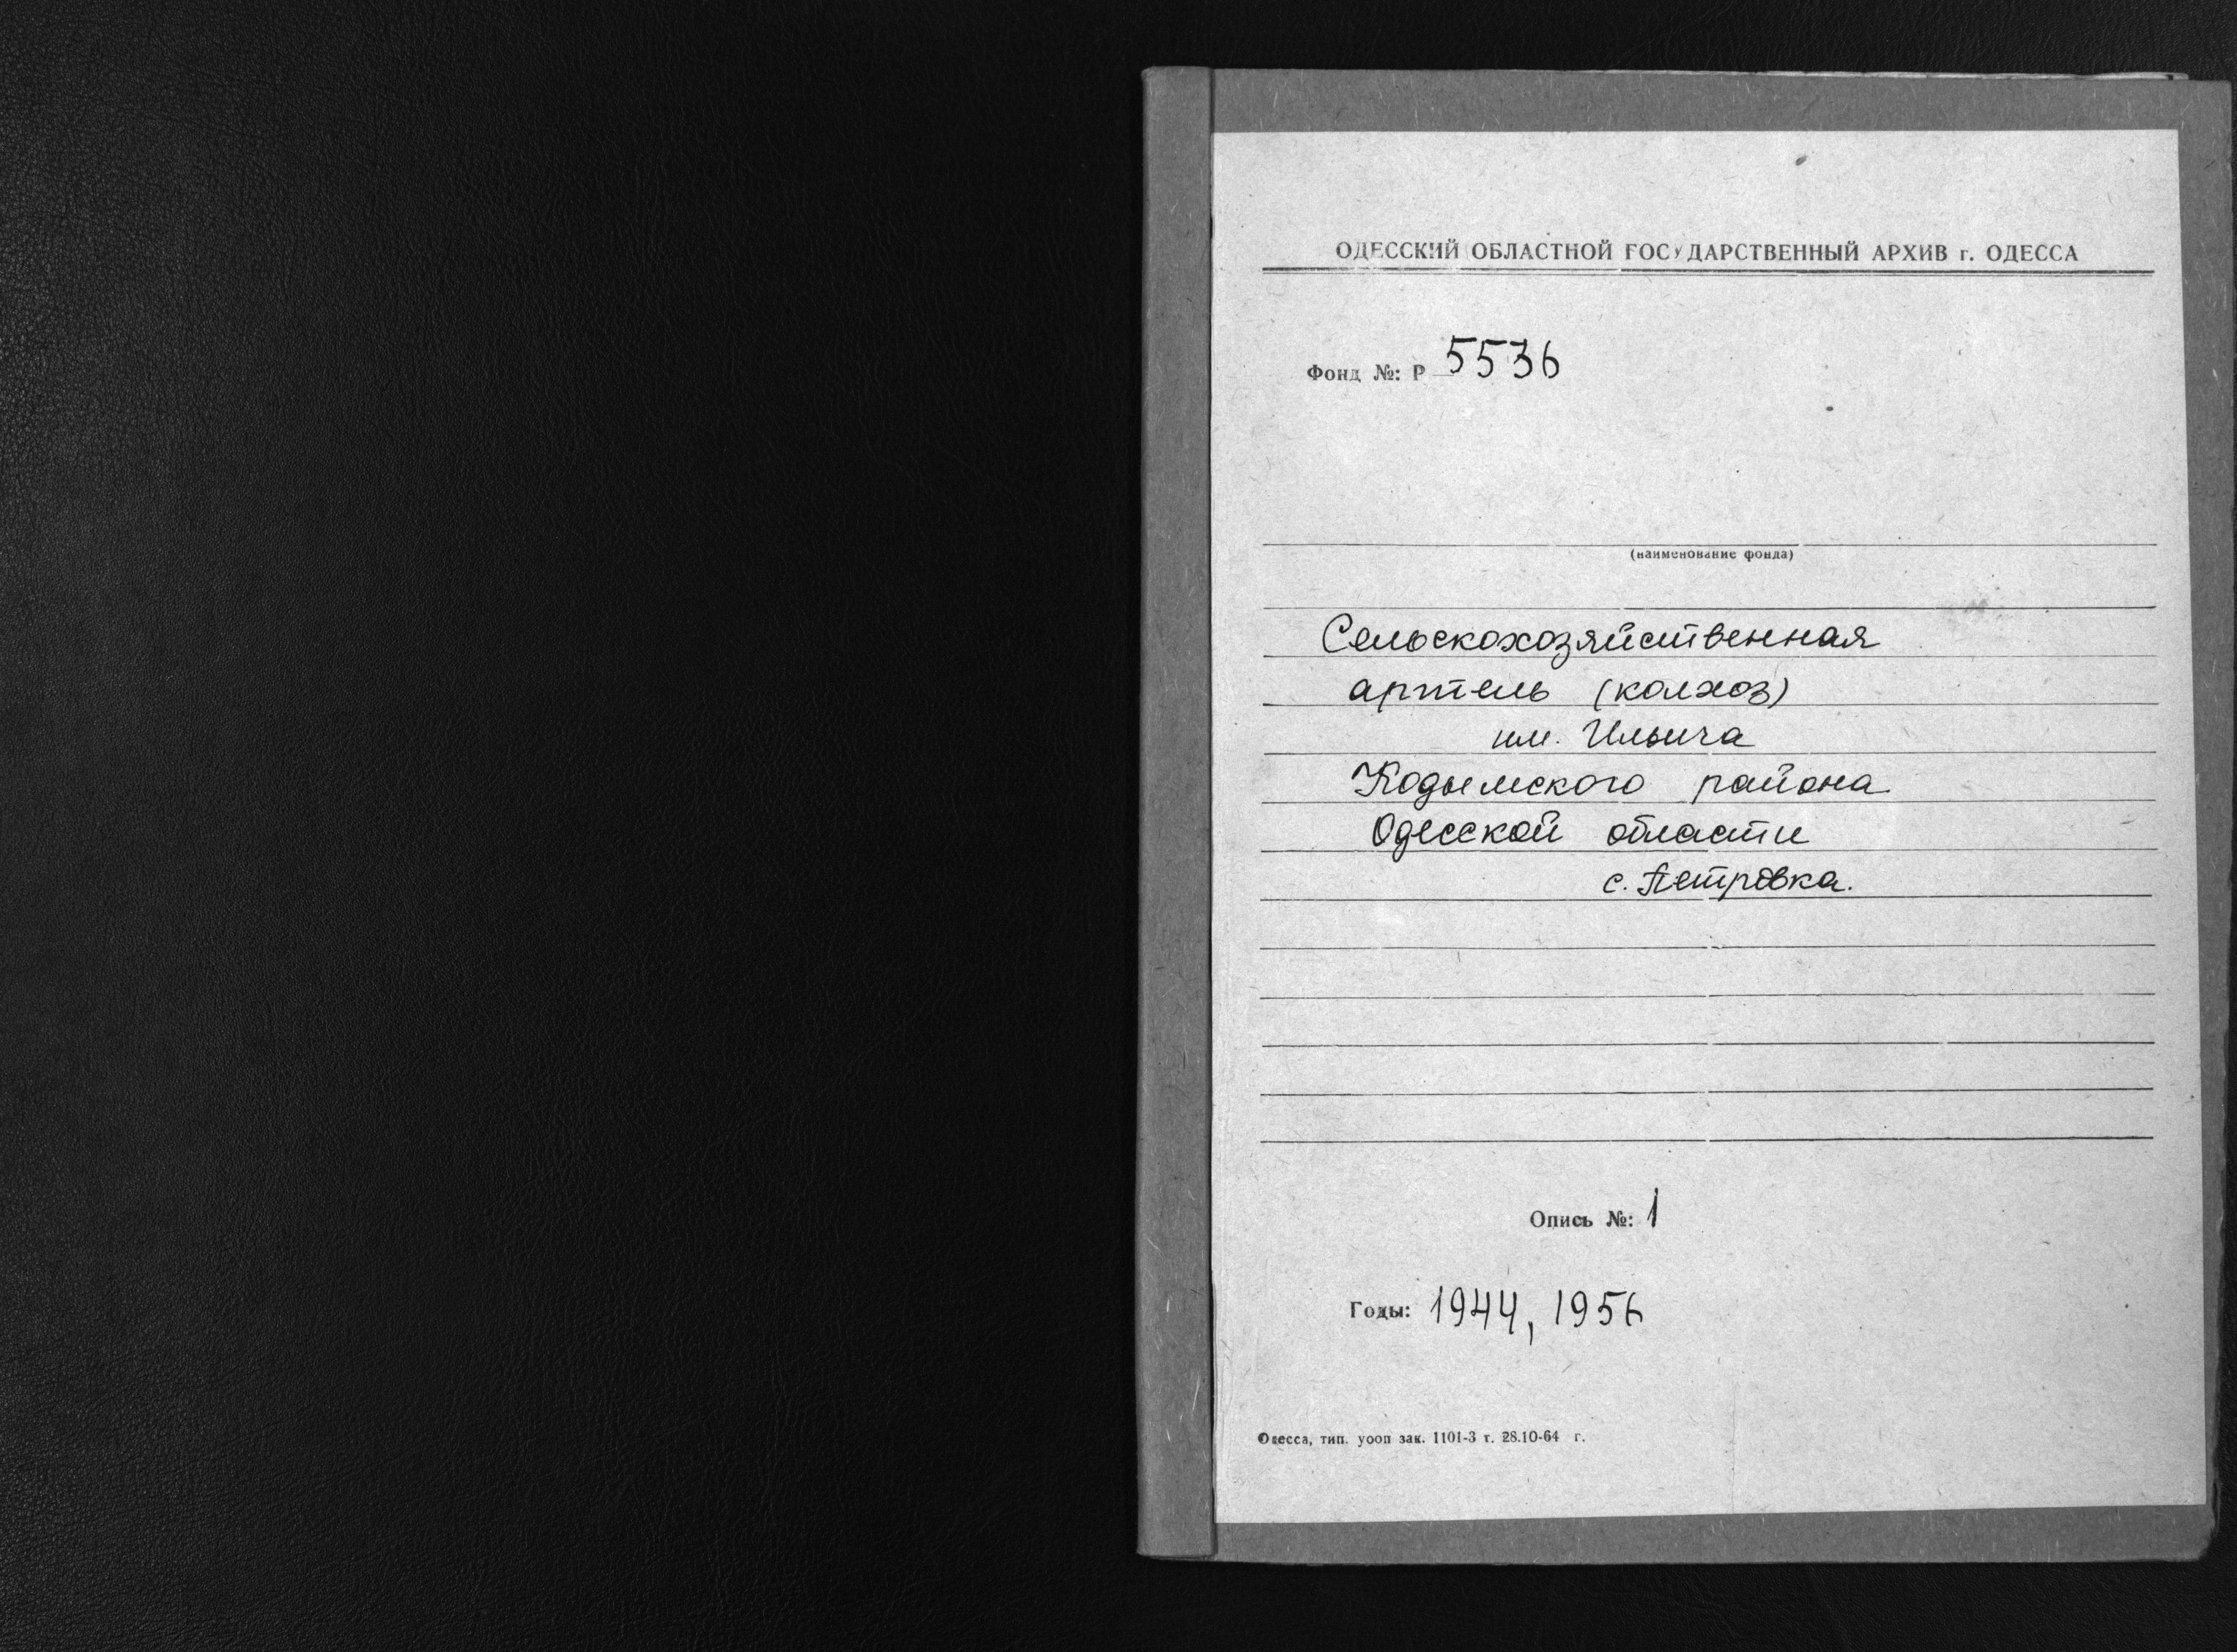 ОДЕССКИЙ ОБЛАСТНОЙ ГОСУДАРСТВЕННЫЙ АРХИВ г. ОДЕССА
Фонд №: Р 5536
(наименование фонда)
Сельскохозяйственная
артель (колхоз)
им. Ильича
Кодымского района
Одесской области
с. Петровка.
Опись №: 1
Годы: 1944, 1956
Одесса, тип. уооп зак. 1101-3 т. 28.10-64 г.